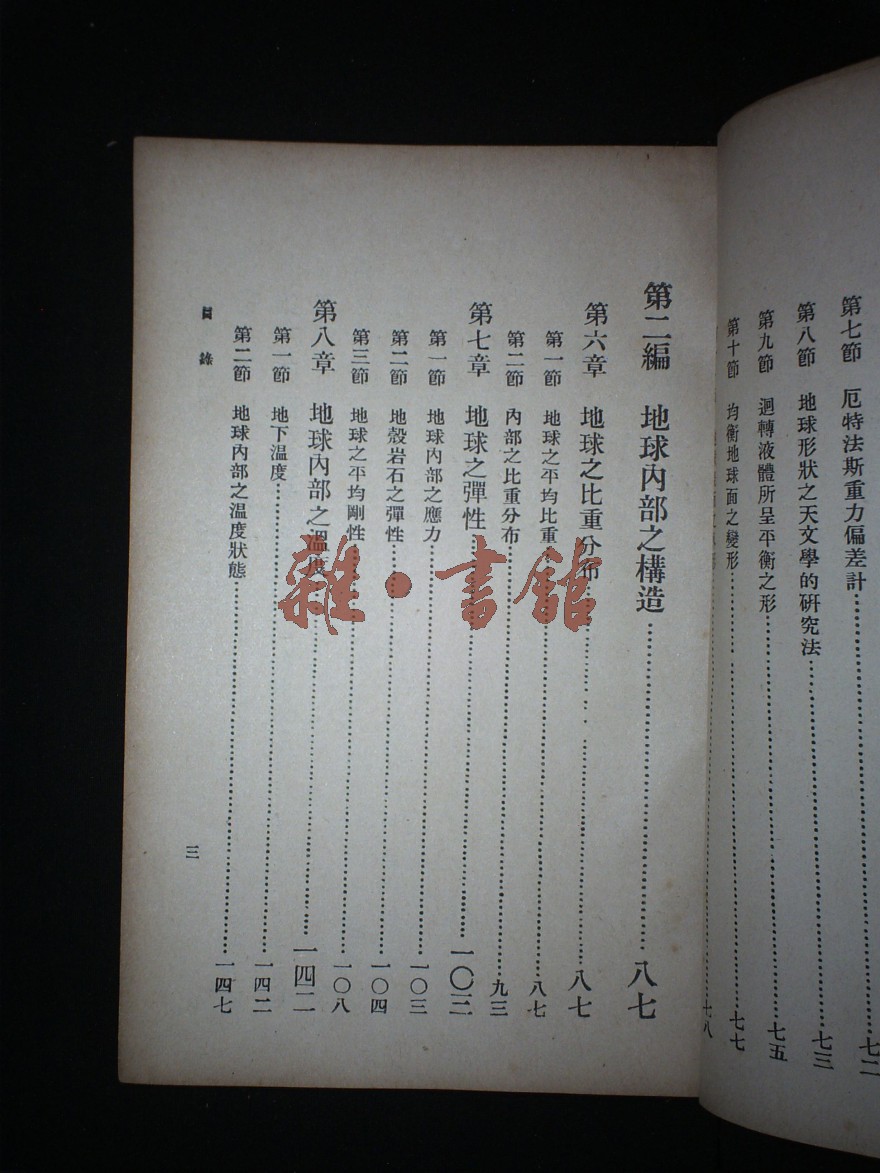 第七節　厄特法斯重力偏差計……七二
第八節　地球形狀之天文學的研究法……七三
第九節　迴轉液體所呈平衡之形……七五
第十節　均衡地球面之變形……七七
七八
第二編　地球內部之構造……八七
第六章　地球之比重分布……八七
第一節　地球之平均比重……八七
第二節　內部之比重分布……九三
第七章　地球之彈性……一〇三
第一節　地球內部之應力……一〇三
第二節　地殼岩石之彈性……一〇四
第三節　地球之平均剛性……一〇八
第八章　地球內部之溫度……一四二
第一節　地下溫度……一四二
第二節　地球內部之溫度狀態……一四七
目錄
三
雜·書館